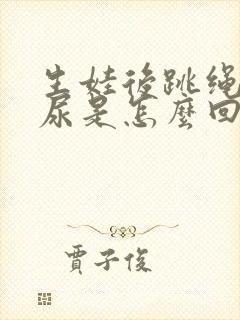 生娃後跳繩
尿是怎麼回
賈子俊